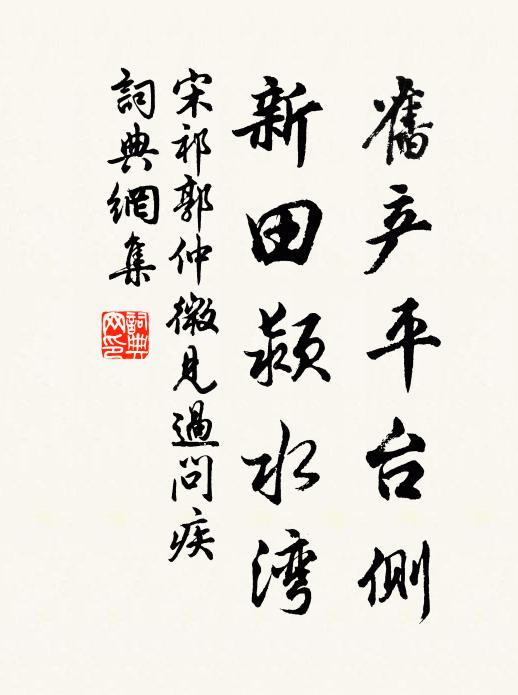 舊产平台側
新田颍水湾
宋祁郭仲微見過問疾
詞典網集
詞典網印